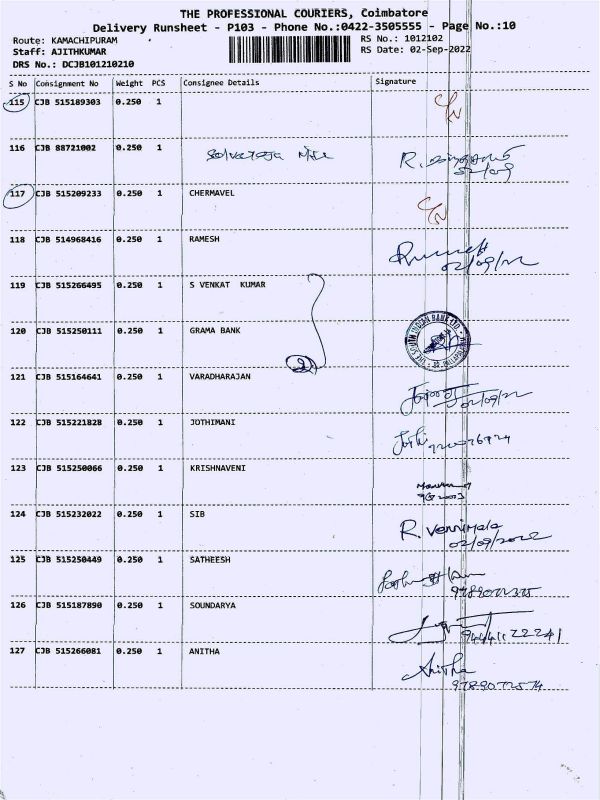 THE PROFESSIONAL COURIERS, Coimbatore
Delivery Runsheet - P103 - Phone No.:0422-3505555 - Page No.:10
Route: KAMACHIPURAM RS No.: 1012102
Staff: AJITHKUMAR RS Date: 02-Sep-2022
DRS No.: DCJB101210210
S No Consignment No Weight PCS Consignee Details Signature
115 CJB 515189303 0.250 1
116 CJB 88721002 0.250 1 R.
02/09
117 CJB 515209233 0.250 1 CHERMAVEL
118 CJB 514968416 0.250 1 RAMESH
02/09/22
119 CJB 515266495 0.250 1 S VENKAT KUMAR
120 CJB 515250111 0.250 1 GRAMA BANK THE SOUTH INDIAN BANK LTD.
121 CJB 515164641 0.250 1 VARADHARAJAN
02/09/22
122 CJB 515221828 0.250 1 JOTHIMANI Jothi
123 CJB 515250066 0.250 1 KRISHNAVENI
124 CJB 515232022 0.250 1 SIB R. Vennimala
02/09/2022
125 CJB 515250449 0.250 1 SATHEESH
126 CJB 515187890 0.250 1 SOUNDARYA
9444122241
127 CJB 515266081 0.250 1 ANITHA Anitha